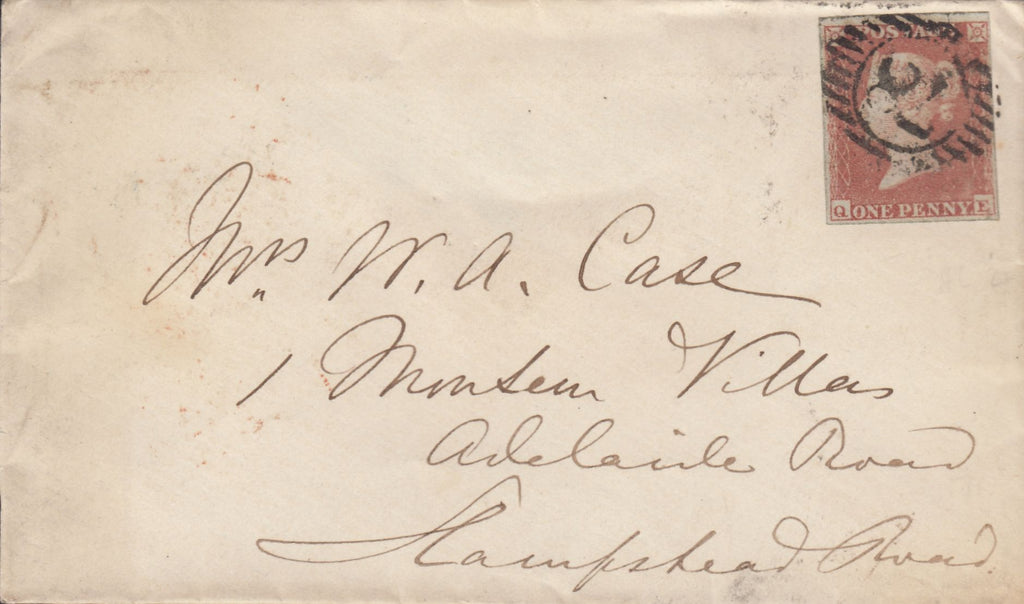 POSTAGE
Q ONE PENNY E
Mrs W. A. Case
1 Montem Villas
Adelaide Road
Hampstead Road